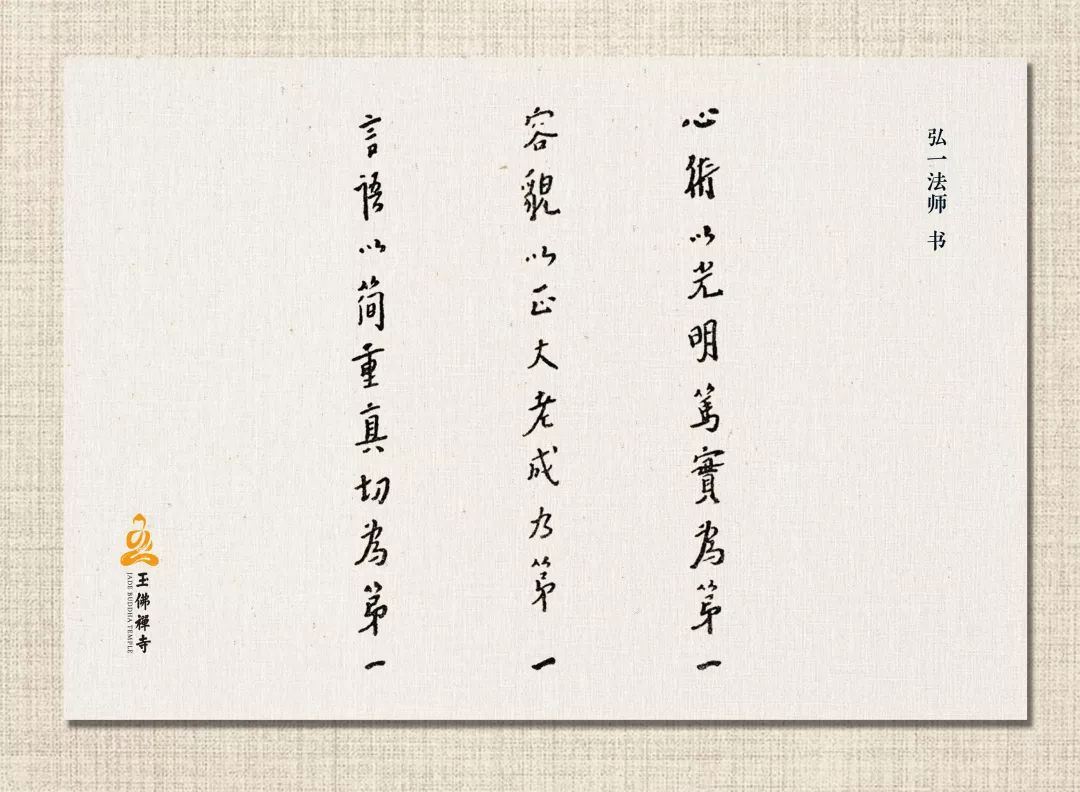 弘一法师 书
心術以光明篤實為第一
容貌以正大老成为第一
言語以简重真切為第一
玉佛禅寺
JADE BUDDHA TEMPLE